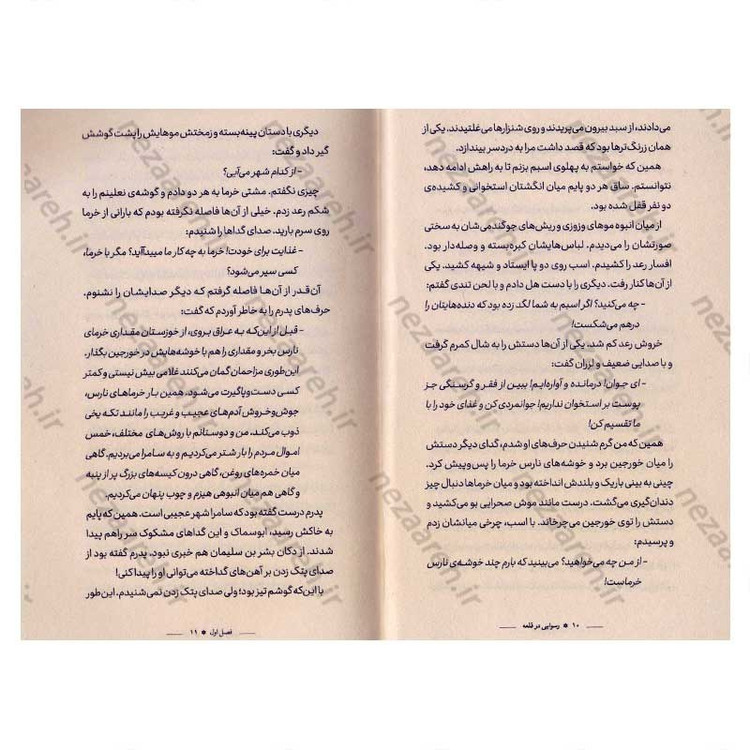 می‌دادند، از سبد بیرون می‌پریدند و روی شنزارها می‌غلتیدند. یکی از
همان زرنگ‌ترها بود که قصد داشت مرا به دردسر بیندازد.
همین که خواستم به پهلوی اسبم بزنم تا به راهش ادامه دهد،
نتوانستم. ساق هر دو پایم میان انگشتان استخوانی و کشیده‌ی
دو نفر قفل شده بود.
از میان انبوه موهای وزوزی و ریش‌های جوگندمی‌شان به سختی
صورتشان را می‌دیدم. لباس‌هایشان کبره‌بسته و وصله‌دار بود.
افسار رعد را کشیدم. اسب روی دو پا ایستاد و شیهه کشید. یکی
از آن‌ها کنار رفت. دیگری را با دست هل دادم و با لحن تندی گفتم:
- چه می‌کنید؟ اگر اسبم به شما لگد زده بود که دنده‌هایتان را
درهم می‌شکست!
خروش رعد کم شد. یکی از آن‌ها دستش را به شال کمرم گرفت
و با صدایی ضعیف و لرزان گفت:
- ای جوان! درمانده و آواره‌ایم! ببین از فقر و گرسنگی جز
پوست بر استخوان نداریم! جوانمردی کن و غذای خود را با
ما تقسیم کن!
همین که من گرم شنیدن حرف‌های او شدم، گدای دیگر دستش
را میان خورجین برد و خوشه‌های نارس خرما را پس‌وپیش کرد.
چینی به بینی باریک و بلندش انداخته بود و میان خرماها دنبال چیز
دندان‌گیری می‌گشت. درست مانند موش صحرایی بو می‌کشید و
دستش را توی خورجین می‌چرخاند. با اسب، چرخی میانشان زدم
و پرسیدم:
- از من چه می‌خواهید؟ می‌بینید که بارم چند خوشه‌ی نارس
خرماست!
۱۰ * رسوایی در قلعه
دیگری با دستان پینه‌بسته و زمختش موهایش را پشت گوشش
گیر داد و گفت:
- از کدام شهر می‌آیی؟
چیزی نگفتم. مشتی خرما به هر دو دادم و گوشه‌ی نعلینم را به
شکم رعد زدم. خیلی از آن‌ها فاصله نگرفته بودم که بارانی از خرما
روی سرم بارید. صدای گداها را شنیدم:
- غذایت برای خودت! خرما به چه کار ما می‌یدآید؟ مگر با خرما،
کسی سیر می‌شود؟
آن‌قدر از آن‌ها فاصله گرفتم که دیگر صدایشان را نشنوم.
حرف‌های پدرم را به خاطر آوردم که گفت:
- قبل از این‌که به عراق بروی، از خوزستان مقداری خرمای
نارس بخر و مقداری را هم با خوشه‌هایش در خورجین بگذار.
این‌طوری مزاحمان گمان می‌کنند غلامی بیش نیستی و کمتر
کسی دست‌وپاگیرت می‌شود. همین بار خرماهای نارس،
جوش‌وخروش آدم‌های عجیب و غریب را مانند تکه یخی
ذوب می‌کند. من و دوستانم با روش‌های مختلف، خمس
اموال مردم را بار شتر می‌کردیم و به سامرا می‌بردیم. گاهی
میان خمره‌های روغن، گاهی درون کیسه‌های بزرگ پر از پنبه
و گاهی هم میان انبوهی هیزم و چوب پنهان می‌کردیم.
پدرم درست گفته بود که سامرا شهر عجیبی است. همین که پایم
به خاکش رسید، ابوسماک و این گداهای مشکوک سر راهم پیدا
شدند. از دکان بشر بن سلیمان هم خبری نبود. پدرم گفته بود از
صدای پتک زدن بر آهن‌های گداخته می‌توانی او را پیدا کنی!
با این‌که گوشم تیز بود؛ ولی صدای پتک زدن نمی‌شنیدم. این‌طور
فصل اول * ۱۱
nezaareh.ir